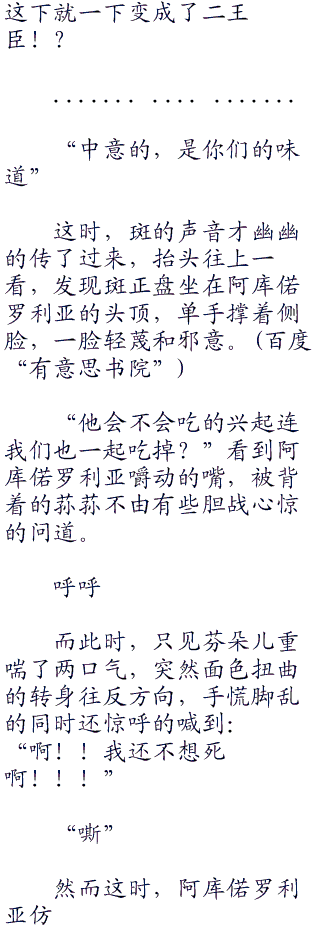 这下就一下变成了二王
臣！？
....... .... .......
“中意的，是你们的味
道”
这时，斑的声音才幽幽
的传了过来，抬头往上一
看，发现斑正盘坐在阿库偌
罗利亚的头顶，单手撑着侧
脸，一脸轻蔑和邪意。(百度
“有意思书院”)
“他会不会吃的兴起连
我们也一起吃掉？”看到阿
库偌罗利亚嚼动的嘴，被背
着的荪荪不由有些胆战心惊
的问道。
呼呼
而此时，只见芬朵儿重
喘了两口气，突然面色扭曲
的转身往反方向，手慌脚乱
的同时还惊呼的喊到：
“啊！！我还不想死
啊！！！”
“嘶”
然而这时，阿库偌罗利
亚仿